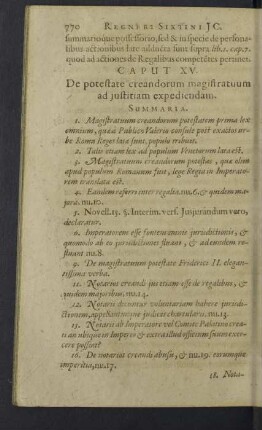 770 REGNERI SIXTINI JC.
summarioque possessorio, sed & in specie de persona-
libus actionibus late adducta sunt supra lib. 1. cap. 7.
quod ad actiones de Regalibus competētes pertinet.
CAPUT XV.
De potestate creandorum magistratuum
ad justitiam expediendam.
SUMMARIA.
1. Magistratuum creandorum potestatem prima lex
omnium, quæ à Publico Valerio consule post exactos ur-
be Roma Reges lata fuit, populo tribuit.
2. Talis etiam lex ad populum
lata est.
3. Magistratuum creandorum potestas, quæ olim
apud populum Romanum fuit, lege Regia in Imperato-
rem translata est.
4. Eandem referri inter regalia. nu. 6. & quidem ma-
jora. nu. 10.
5. Novell. 15. §. Interim. vers. Jusjurandum vero,
declaratur.
6. Imperatorem esse fontem omnis jurisdictionis, &
quomodo ab eo jurisdictiones fluant, & ad eundem re-
fluant nu. 8.
9. De magistratuum potestate Frederici II. elegan-
tissima verba.
11. Notarios creandi jus etiam esse de regalibus, &
quidem majoribus. nu. 14.
12. Notarii dicuntur voluntariam habere jurisdi-
ctionem, appellanturque judices chartularii. nu. 13.
15. Notarii ab Imperatore vel Comite Palatino crea-
ti an ubique in Imperio & extra illud officium suum exer-
cere possint?
16. De notarios creandi abusu, & nu. 19. eorumque
imperitia, nu. 17.
18. Nota-